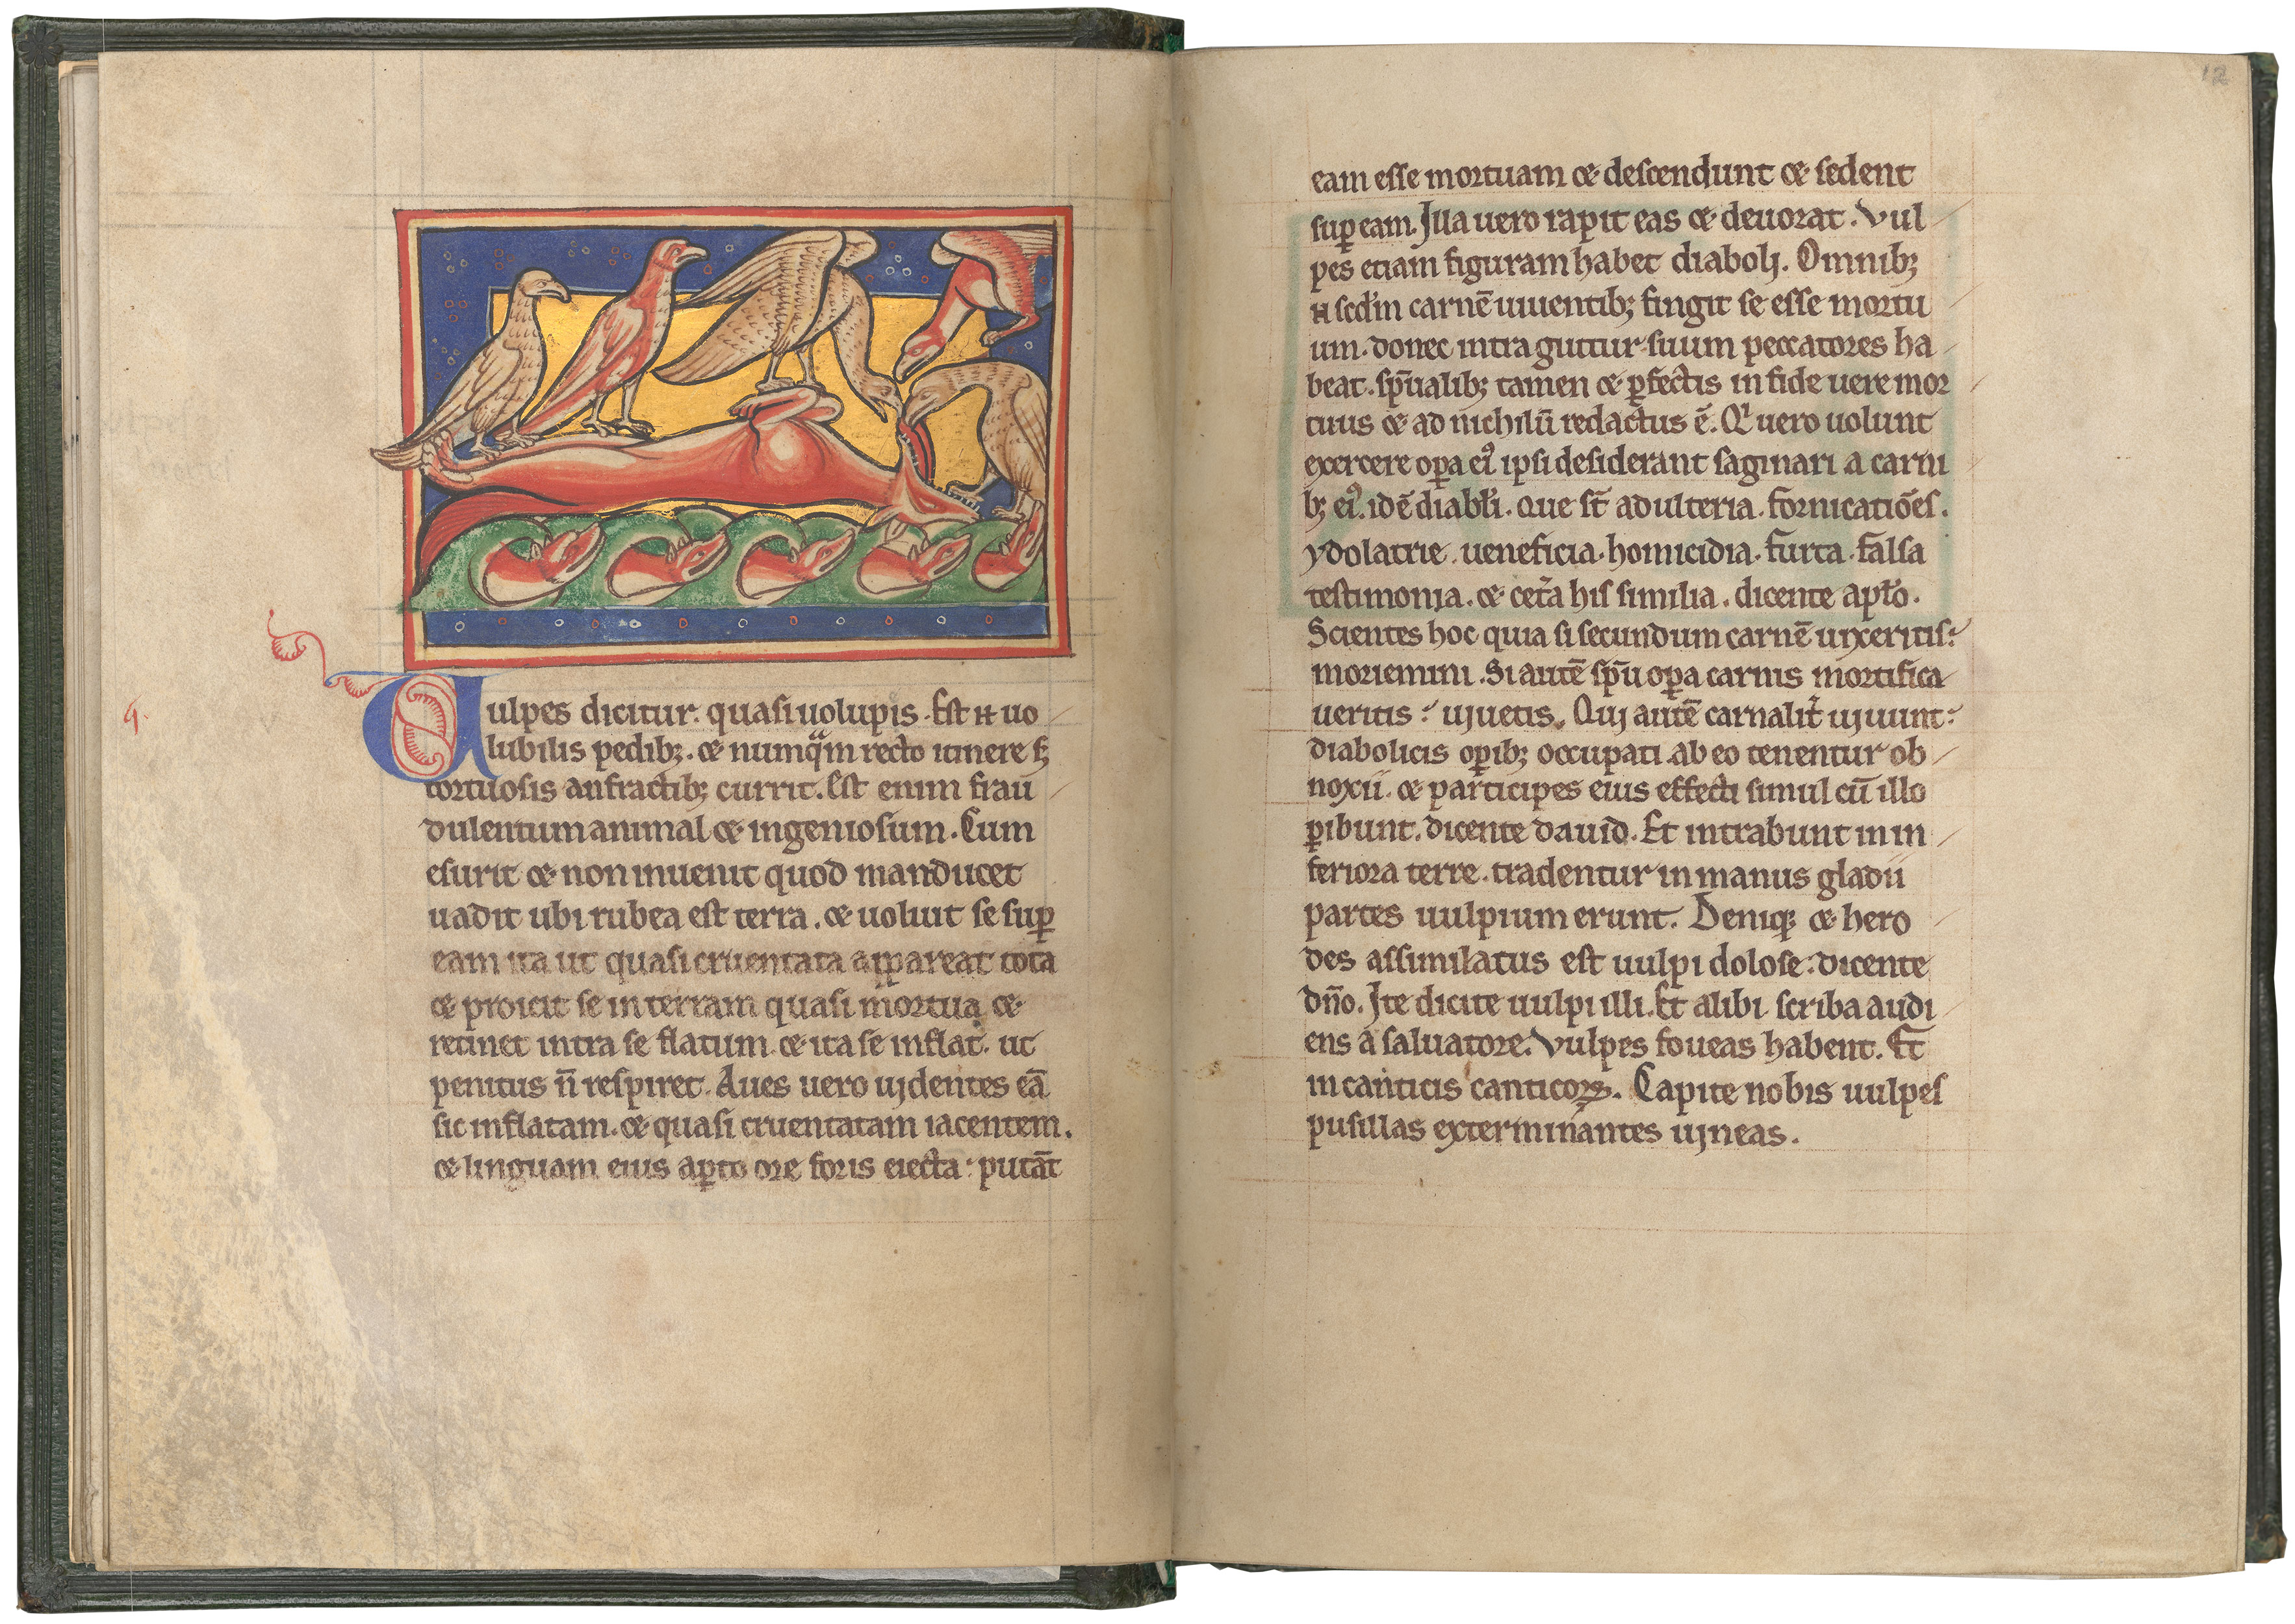 Uulpes dicitur: quasi uolupis. Est n̄ uo
lubilis pedib; ⁊ numqᵃm recto itinere s;
tortuosis anfractib; currit. Est enim frau
dulentum animal ⁊ ingeniosum. Cum
esurit ⁊ non inuenit quod manducet
uadit ubi rubea est terra. ⁊ uoluit se suꝑ
eam ita ut quasi cruentata appareat tota
⁊ proicit se in terram quasi mortua ⁊
retinet intra se flatum. ⁊ ita se inflat. ut
penitus n̄ respiret. Aues uero uidentes eā
sic inflatam. ⁊ quasi cruentatam iacentem.
⁊ linguam eius aꝑto ore foris eiecta: putāt
12
eam esse mortuam ⁊ descendunt ⁊ sedent
suꝑ eam. Illa uero rapit eas ⁊ deuorat. Vul
pes etiam figuram habet diaboli. Omnib;
n̄ scd'm carnē uiuentib; fingit se esse mortu
um. donec intra guttur suum peccatores ha
beat. sp̄ualib; tamen ⁊ ꝑfectis in fide uere mor
tuus ⁊ ad nichilū redactus ē. Qⁱ uero uolunt
exercere oꝑa eiꝰ ipsi desiderant saginari a carni
b; eiꝰ. idē diabl'i. que st̄ adulteria. fornicatiōes.
ydolatrie. ueneficia. homicidia. furta. falsa
testimonia. ⁊ cet'a his similia. dicente apl'o.
Scientes hoc quia si secundum carnē uixeritis:
moriemini. Si autē sp̄u oꝑa carnis mortifica
ueritis: uiuetis. Qui autē carnalit' uiuunt:
diabolicis oꝑib; occupati. ab eo tenentur ob
noxii. ⁊ participes eius effecti simul cū illo
ꝑibunt. dicente dauid. Et intrabunt in in
feriora terre. tradentur in manus gladii
partes uulpium erunt. Deniq; ⁊ hero
des assimilatus est uulpi dolose: dicente
dn̄o. Ite dicite uulpi illi. Et alibi scriba audi
ens a saluatore. Vulpes foueas habent. Et
in canticis canticoꝝ. Capite nobis uulpes
pusillas exterminantes uineas.